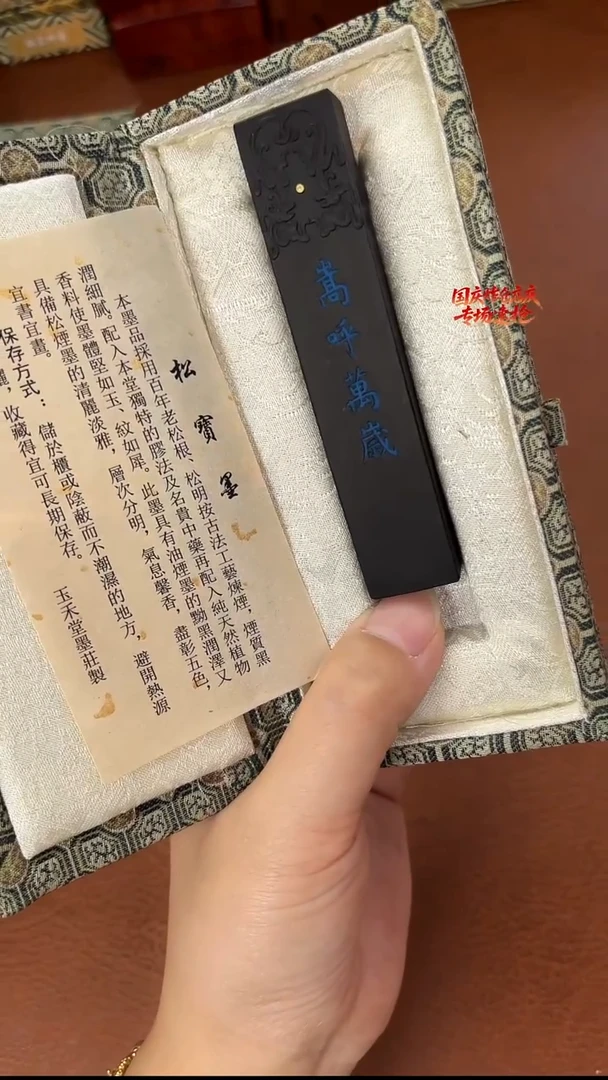 松寳墨
本墨品採用百年老松根、松明按古法工藝煉煙，煙質黑
潤細膩。配入本堂獨特的膠法及名貴中藥再配入純天然植物
香料使墨體堅如玉、紋如犀。此墨具有油煙墨的黝黑潤澤又
具備松煙墨的清麗淡雅，層次分明，氣息馨香，盡彰五色，
宜書宜畫。
保存方式：儲於櫃或陰蔽而不潮濕的地方，避開熱源
收藏得宜可長期保存。
玉禾堂墨莊製
嵩呼萬歲